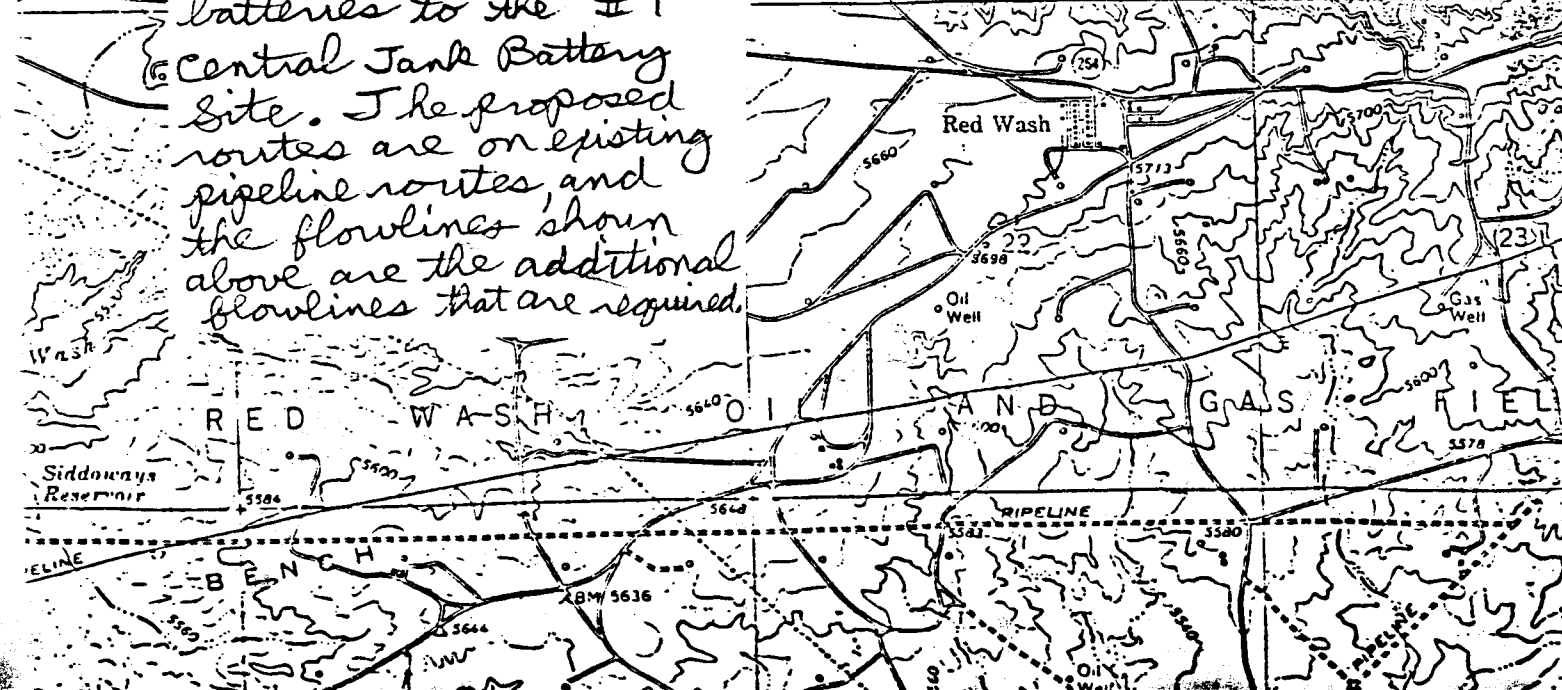 batteries to the #1
Central Tank Battery
Site. The proposed
routes are on existing
pipeline routes, and
the flowlines shown
above are the additional
flowlines that are required.
254
Red Wash
5660
5700
5713
22
5698
23
5660
Oil
Well
Gas
Well
Wash
5640
5600
RED WASH OI AND GAS FIEL
5578
5600
Siddoways
Reservoir
5584
5648
PIPELINE
5583
5580
ELINE
BENCH
BM 5636
5560
5644
5540
PIPELINE
Oil
Well